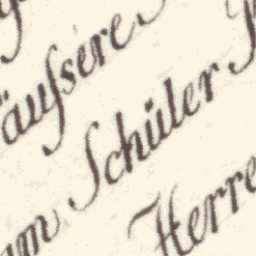 äuſsere
m Schüler
Herre